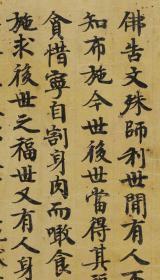 佛告文殊師利世間有人不
知布施今世後世當得其
貪惜寧自割身肉而噉食
施求後世之福世又有人身